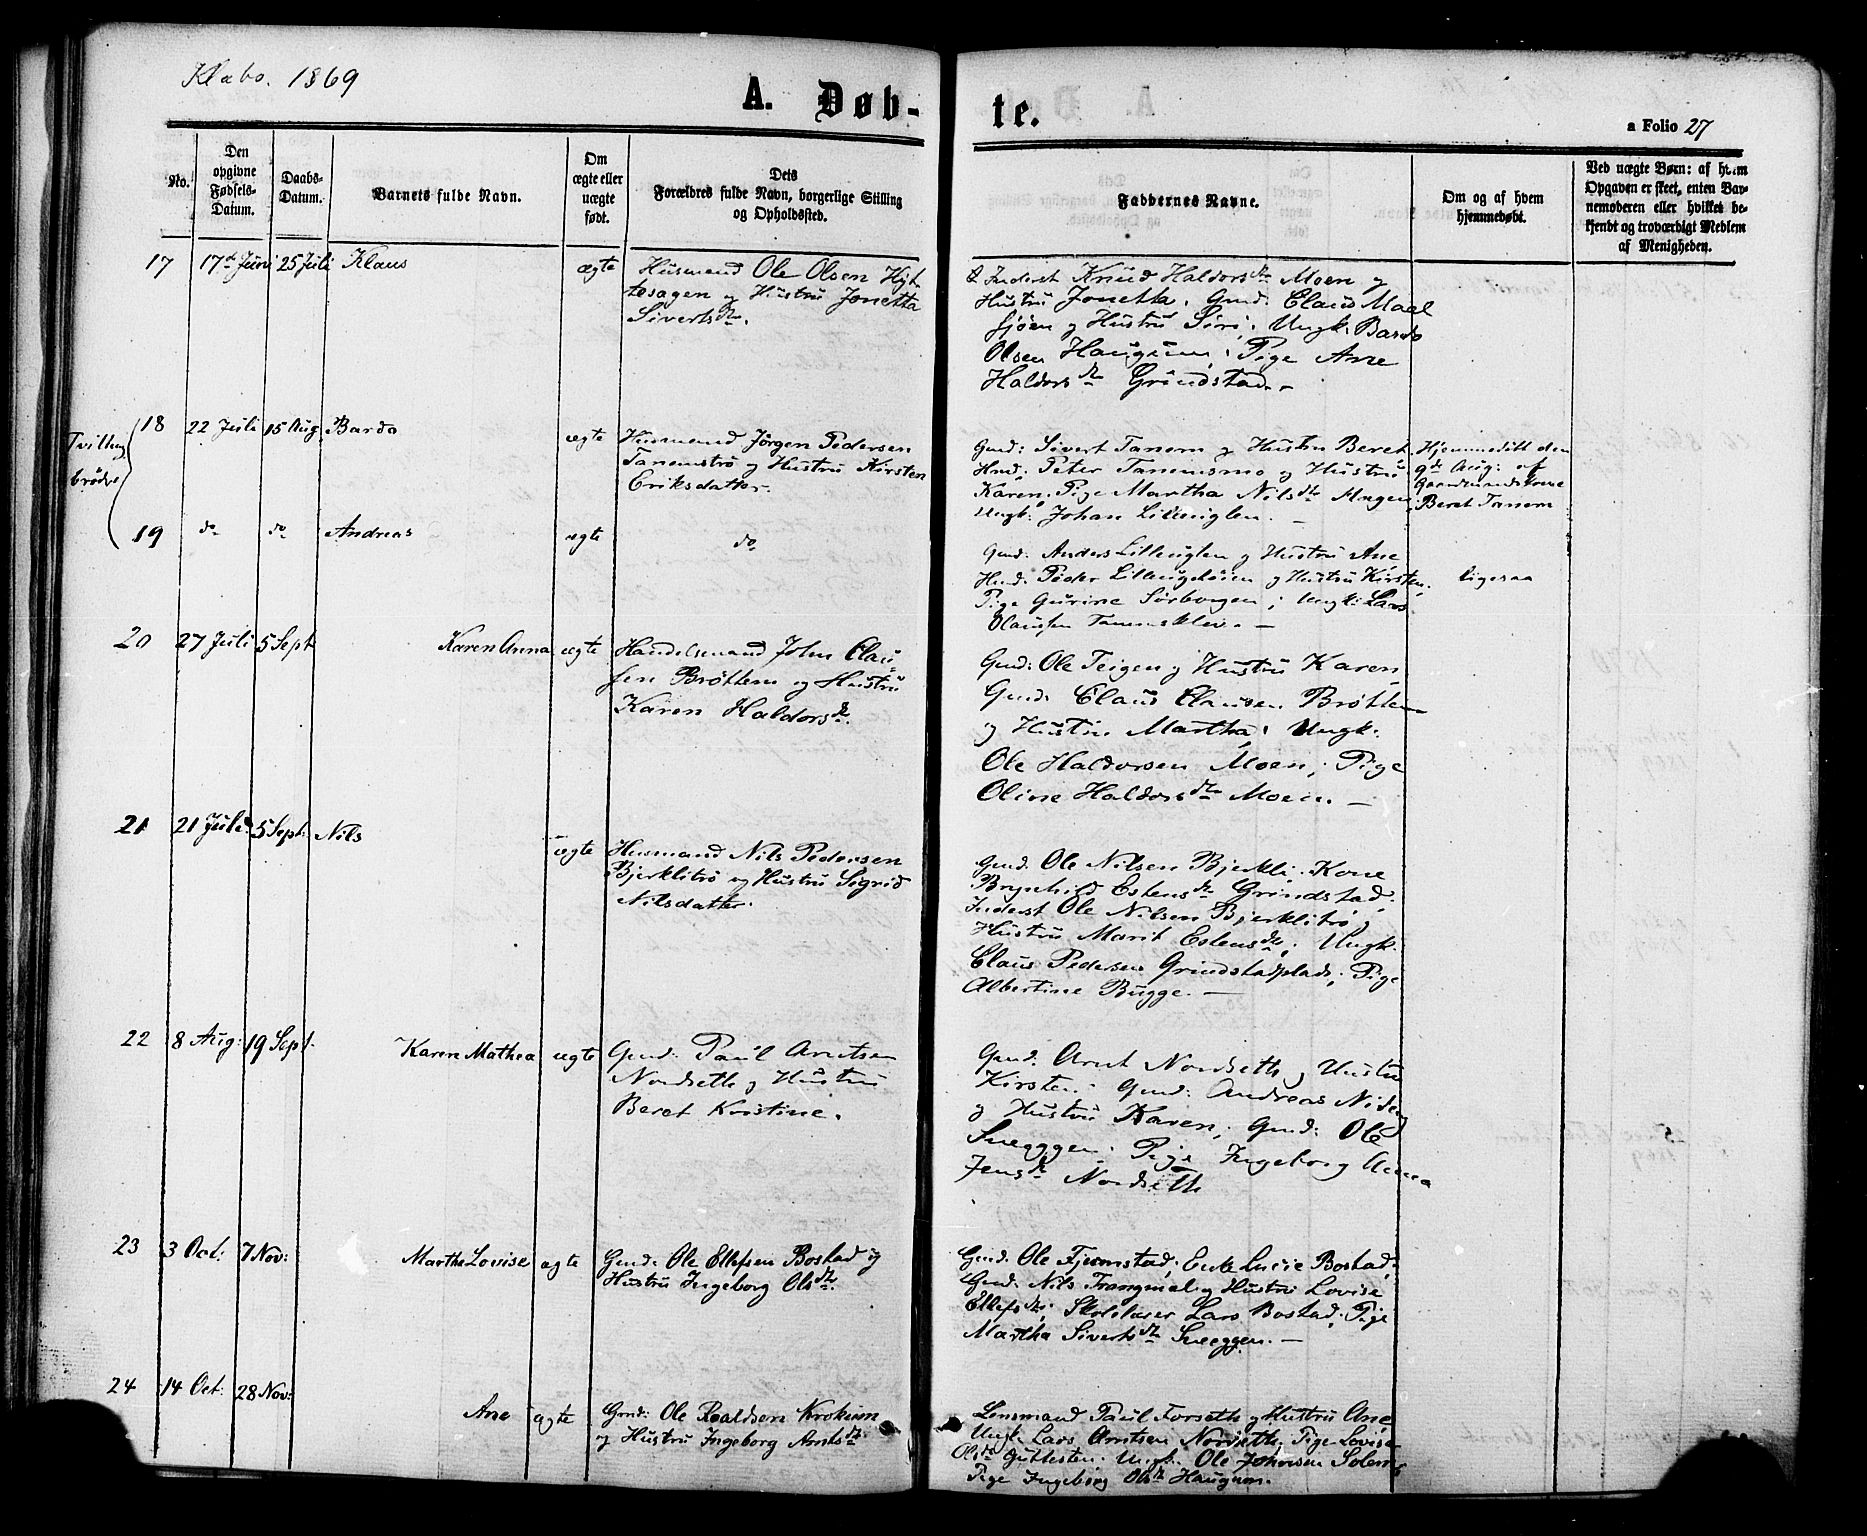 Klæbo. 1869
A. Døb-
te.
a Folio 27
No.
Den
opgivne
Fødsels-
Datum.
Daabs-
Datum.
Barnets fulde Navn.
Om
ægte eller
uægte
født.
Dets
Forældres fulde Navn, borgerlige Stilling
og Opholdssted.
Faddernes Navne.
Om og af hvem
hjemmedøbt.
Ved uægte Børn: af hvem
Opgaven er skeet, enten Bar-
nemoderen eller hvilket be-
kjendt og troværdigt Medlem
af Menigheden.
17 17de Juni 25 Juli Klaus ægte
Husmand Ole Olsen Hyt-
tesagen og Hustru Jonetta
Siverts dtr.
Inderst Knud Haldors Moen og
Hustru Jonetta. Gmd: Claus Maal
sjøen og Hustru Siri. Ungk: Bardo
Olsen Haugum; Pige Ane
Haldors dtr Grindstad. -
Tvilling
brødre
18 22 Juli 15 Aug. Bardo ægte
Husmand Jørgen Pedersen
Tanemstrø og Hustru Kirsten
Eriksdatter.
Gmd: Sivert Tanem og Hustru Beret.
Hmd: Peter Tanemsmo og Hustru
Karen. Pige Martha Nils dtr
Ungk: Johan Lilleuglen. -
Hjemmedøbt den
9de Aug: af
Gaardmandskone
Beret Tanem
19 do do Andreas ægte do
Gmd: Anders Lilleuglen og Hustru Ane
Hmd: Peder og Hustru Kirsten,
Pige Gurine; Ungk: Lars
Olausen Tanemsklev. -
ligesaa
20 27 Juli 5 Sept Karen Anna ægte
Handelsmand John Clau-
sen Brøttem og Hustru
Karen Haldors dtr.
Gmd: Ole Teigen og Hustru Karen
Gmd: Claus Clausen Brøttem
og Hustru Martha; Ungk:
Ole Haldorsen Moen; Pige
Oline Haldors dtr Moen. -
21 21 Juli 5 Sept: Nils ægte
Husmand Nils Pedersen
Bjerklitrø og Hustru Sigrid
Nilsdatter.
Gmd. Ole Nilsen Bjerkli. Kone
Brynhild Estens dtr Grindstad.
Inderst Ole Nilsen Bjerklitrø og
Hustru Marit Estens dtr; Ungk.
Claus Pedersen Grindstadplads; Pige
Albertine Bugge. -
22 8 Aug: 19 Sept. Karen Mathea ægte
Gmd: Paul Arntsen
Nordseth og Hustru
Beret Kristine.
Gmd: Arnt Nordseth og Hustru
Kirsten. Gmd: Andreas
og Hustru Karen; Gmd: Ole
Sneeggen. Pige Ingeborg Anna
Jens dtr Nordseth
23 3 Oct: 7 Nov: Martha Lovise ægte
Gmd: Ole Ellefsen Bostad og
Hustru Ingeborg Ols dtr.
Gmd: Ole Fjeemstad, Enke Lucie Bostad,
Gmd: Nils Trangmæl og Hustru Lovise
Ellefs dtr; Skolelærer Lars Bostad; Pige
Martha Siverts dtr Sneeggen. -
24 14 Oct: 28 Nov: Ane ægte
Gmd: Ole Roaldsen Krokum
og Hustru Ingeborg Arnts dtr
Lensmand Paul Forseth og Hustru Ane
Ungk. Lars Arntsen Nordseth; Pige Lovise
Ols dtr Guttesten. Ungk: Ole Johnsen Solem
Pige Ingeborg Ols dtr Haugnan.